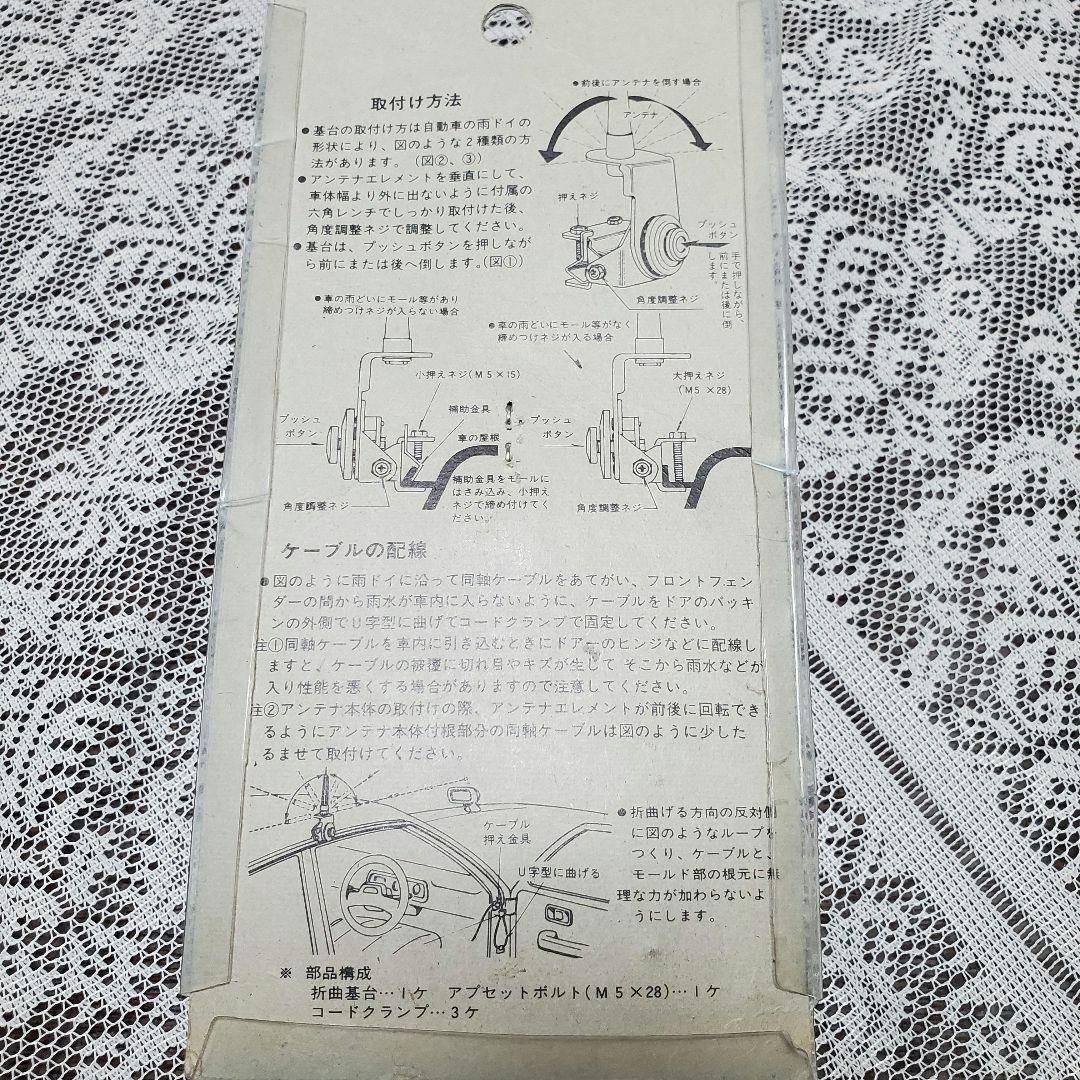 取付け方法
●基台の取付け方は自動車の雨ドイの
形状により、図のような2種類の方
法があります。(図②、③)
●アンテナエレメントを垂直にして、
車体幅より外に出ないように付属の
六角レンチでしっかり取付けた後、
角度調整ネジで調整してください。
●基台は、プッシュボタンを押しなが
ら前にまたは後へ倒します。(図①)
●前後にアンテナを倒す場合
アンテナ
押えネジ
プッシュ
ボタン
手で押しながら、
前にまたは後に倒
します。
角度調整ネジ
●車の雨どいにモール等があり
締めつけネジが入らない場合
小押えネジ(M5×15)
補助金具
プッシュ
ボタン
車の屋根
補助金具をモールに
はさみ込み、小押え
ネジで締め付けてく
ださい。
角度調整ネジ
●車の雨どいにモール等がなく
締めつけネジが入る場合
大押えネジ
(M5×28)
プッシュ
ボタン
角度調整ネジ
ケーブルの配線
●図のように雨ドイに沿って同軸ケーブルをあてがい、フロントフェン
ダーの間から雨水が車内に入らないように、ケーブルをドアのパッキ
ンの外側でU字型に曲げてコードクランプで固定してください。
注①同軸ケーブルを車内に引き込むときにドアーのヒンジなどに配線し
ますと、ケーブルの被覆に切れ目やキズが生じて そこから雨水などが
入り性能を悪くする場合がありますので注意してください。
注②アンテナ本体の取付けの際、アンテナエレメントが前後に回転でき
るようにアンテナ本体付根部分の同軸ケーブルは図のように少した
るませて取付けてください。
ケーブル
押え金具
U字型に曲げる
●折曲げる方向の反対側
に図のようなループを
つくり、ケーブルと、
モールド部の根元に無
理な力が加わらないよ
うにします。
※ 部品構成
折曲基台…1ケ アプセットボルト(M5×28)…1ケ
コードクランプ…3ケ